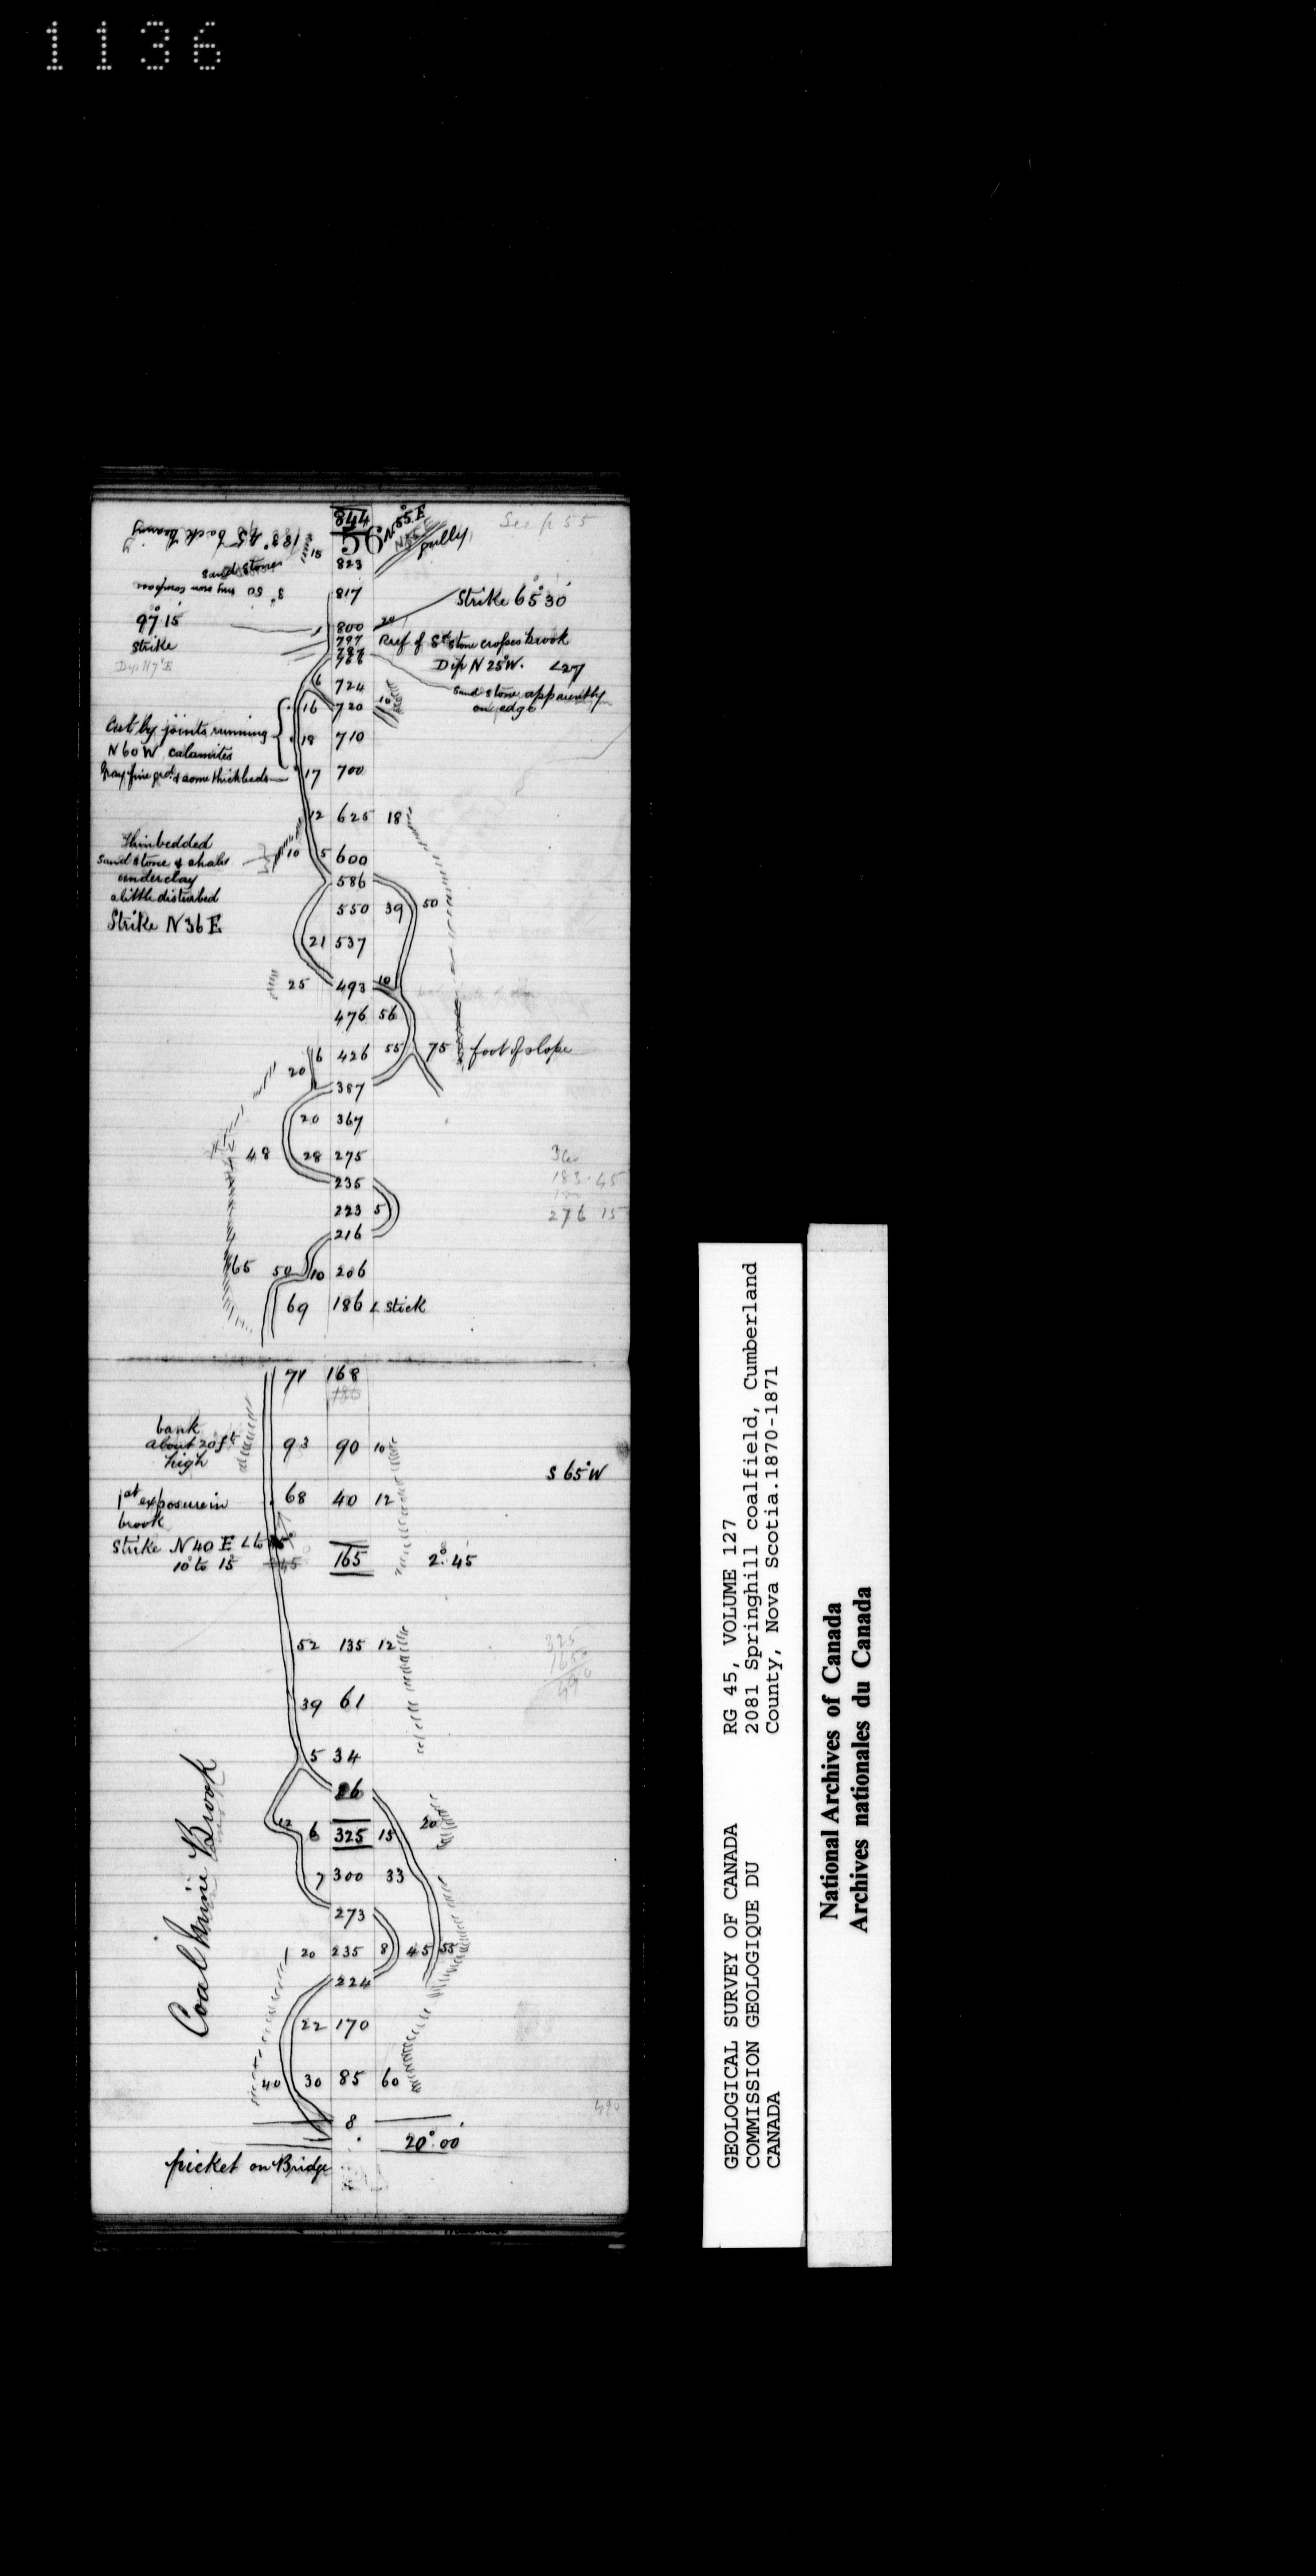 1136
844
56
N 85 E
gully
See p 55
183° 45 back bearing
15
823
sand stones
817
3° 50
my own compass
Strike 65° 30'
97° 15'
800
20
797
Reef of Sdstone crosses brook
Strike
787
768
Dip N 25° W. <27
6 724
sand stone apparently
on edge
16 720 10
Cut by joints running
N60W calamites
18 710
Gray fine grd & some thick beds
17 700
12 625 18
Thinbedded
sandstone & shales
underclay
a little disturbed
Strike N36E
10 5 600
586
550 39 50
21 537
25 493 10
476 56
6 426 55 75 foot of slope
20
387
20 367
48 28 275
235
183.45
223 5
276 15
216
65 50 10 206
69 186 < stick
71 168
186
bank
about 20 ft
high
93 90 10
S 65° W
1st exposure in
brook
68 40 12
Strike N40E < to
10° to 15°
165
2° 45'
52 135 12
325
165
490
39 61
5 34
26
12 6 325 15 20
7 300 33
273
20 235 8 45 55
224
Coal Mine Brook
22 170
40 30 85 60
490
8
20° 00'
picket on Bridge
GEOLOGICAL SURVEY OF CANADA RG 45, VOLUME 127
COMMISSION GEOLOGIQUE DU 2081 Springhill coalfield, Cumberland
CANADA County, Nova Scotia.1870-1871
National Archives of Canada
Archives nationales du Canada